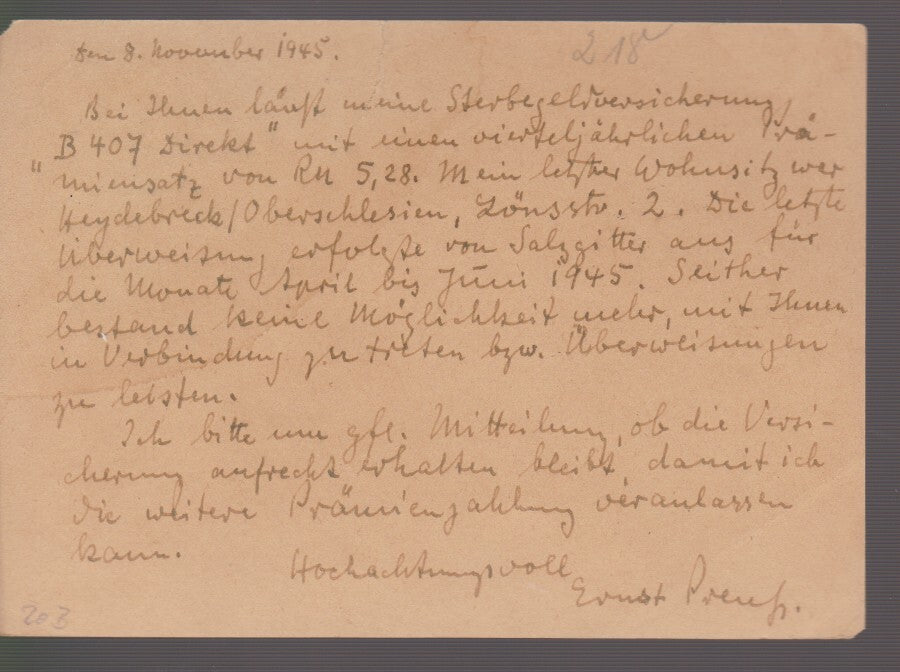 Den 8. November 1945.
218
Bei Ihnen läuft meine Sterbegeldversicherung
"B 407 Direkt" mit einen vierteljährlichen Prä-
miensatz von RM 5,28. Mein letzter Wohnsitz war
Heydebreck/Oberschlesien, Lönsstr. 2. Die letzte
Überweisung erfolgte von Salzgitter aus für
die Monate April bis Juni 1945. Seither
bestand keine Möglichkeit mehr, mit Ihnen
in Verbindung zu treten bzw. Überweisungen
zu leisten.
Ich bitte um gfl. Mitteilung, ob die Versi-
cherung aufrecht erhalten bleibt, damit ich
die weitere Prämienzahlung veranlassen
kann.
Hochachtungsvoll
Ernst Preuß.